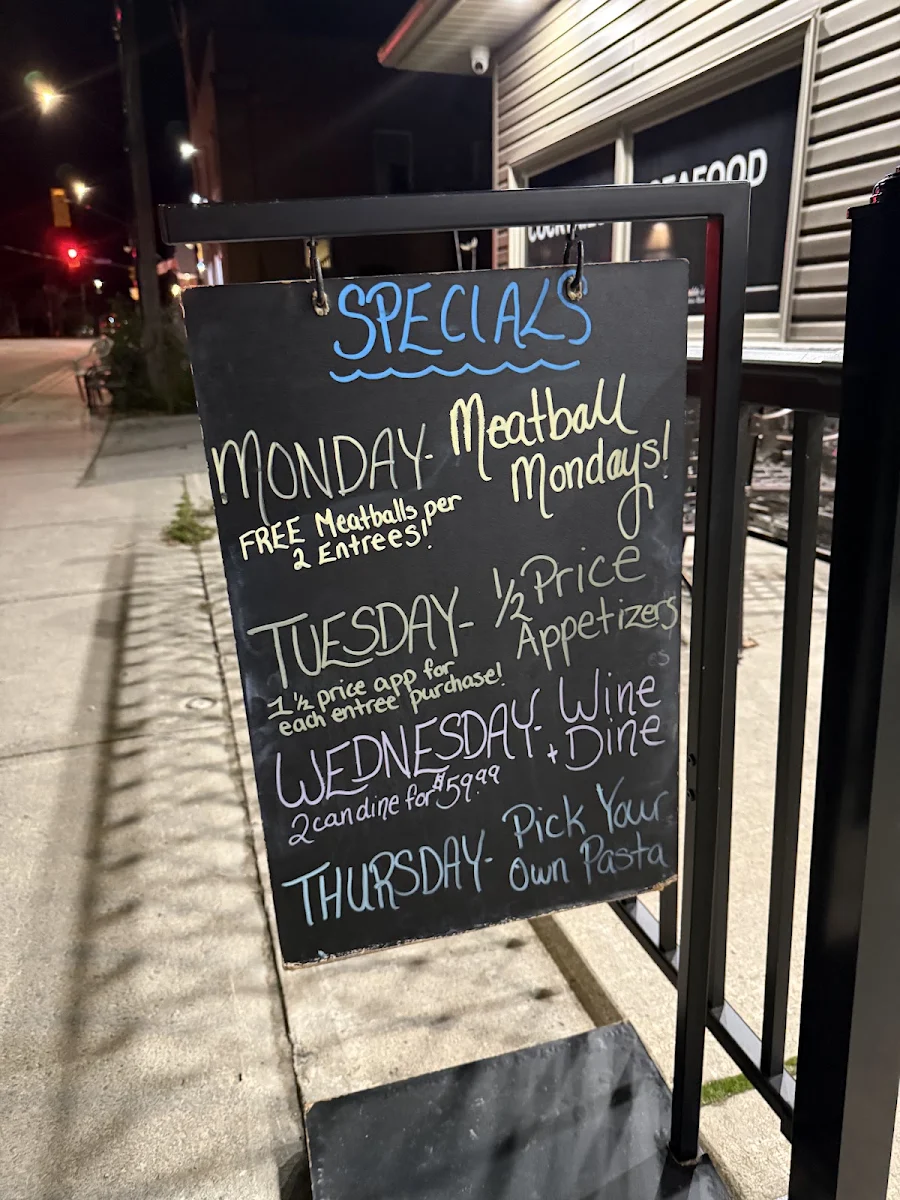 SEAFOOD
SPECIALS
MONDAY- Meatball
Mondays!
FREE Meatballs per
2 Entrees!
TUESDAY- 1/2 Price
Appetizers
1 1/2 price app for
each entree purchase!
WEDNESDAY- Wine
+ Dine
2 can dine for $59.99
THURSDAY- Pick Your
Own Pasta